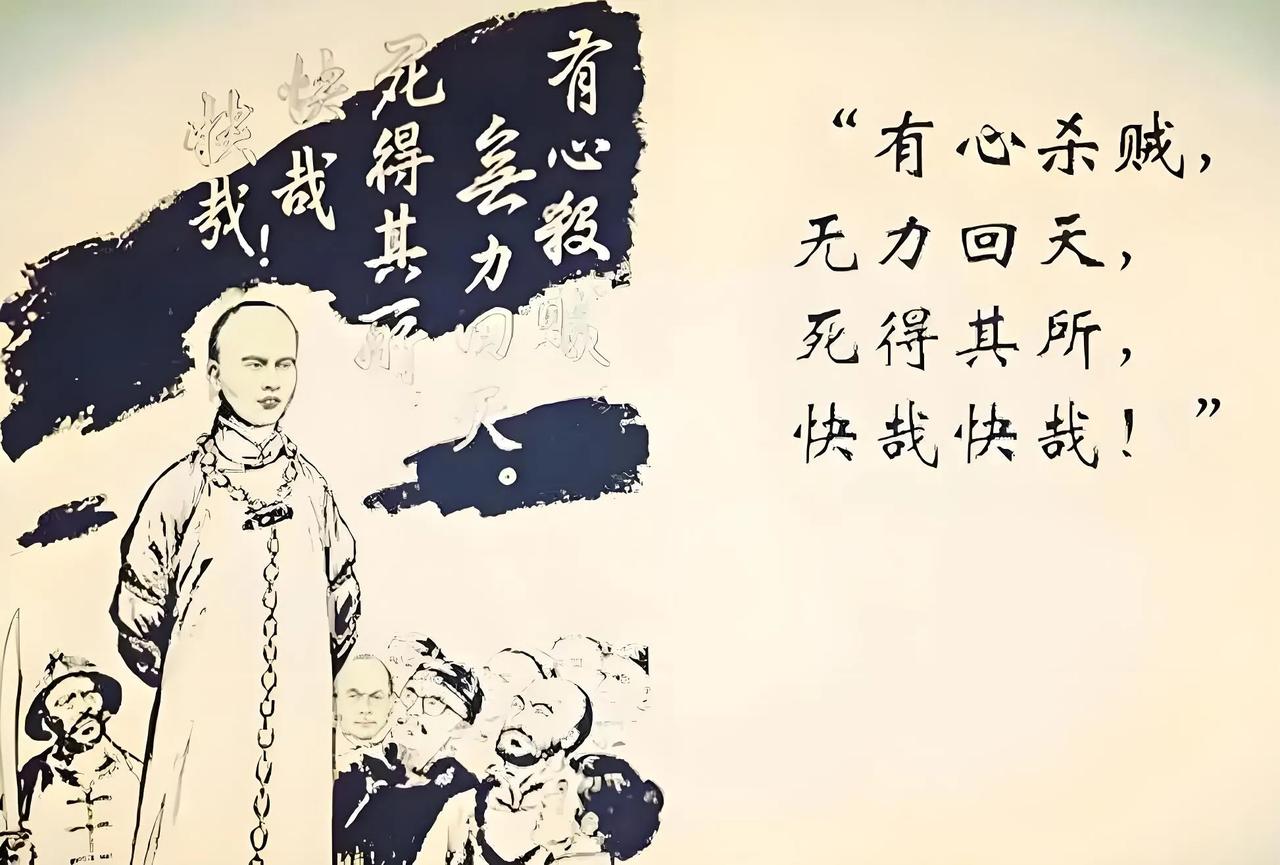 有心殺賊
無力回天。
死得其所
快哉
快哉!
“有心杀贼,
无力回天,
死得其所,
快哉快哉! ”